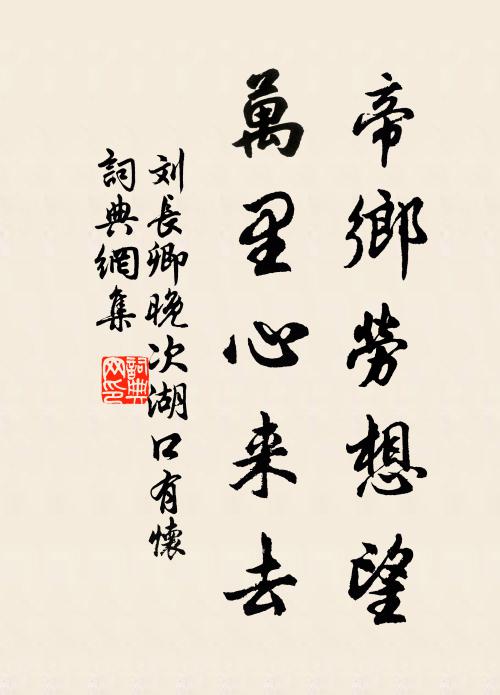 帝鄉勞想望
萬里心来去
刘長卿晚次湖口有懷
詞典網集
詞典网印